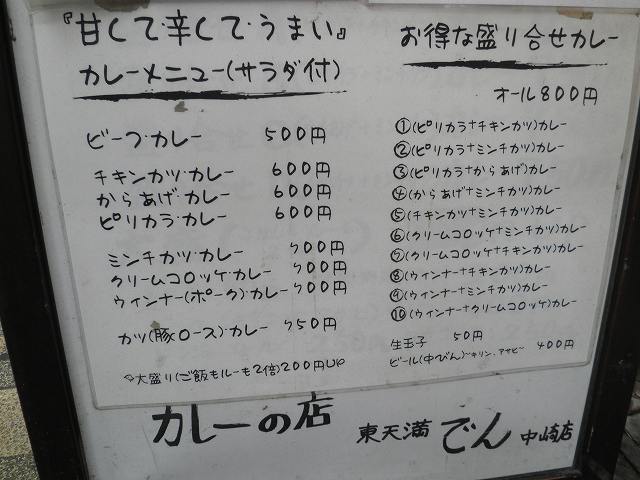 『甘くて辛くて・うまい』
カレーメニュー(サラダ付)
ビーフ・カレー 500円
チキンカツ・カレー 600円
からあげ・カレー 600円
ピリカラ・カレー 600円
ミンチカツ・カレー 700円
クリームコロッケ・カレー 700円
ウィンナー(ポーク)・カレー 700円
カツ(豚ロース)・カレー 750円
大盛り(ご飯もルーも2倍)200円UP
お得な盛り合せカレー
オール800円
①(ピリカラ+チキンカツ)カレー
②(ピリカラ+ミンチカツ)カレー
③(ピリカラ+からあげ)カレー
④(からあげ+ミンチカツ)カレー
⑤(チキンカツ+ミンチカツ)カレー
⑥(クリームコロッケ+ミンチカツ)カレー
⑦(クリームコロッケ+チキンカツ)カレー
⑧(ウィンナー+チキンカツ)カレー
⑨(ウィンナー+ミンチカツ)カレー
⑩(ウィンナー+クリームコロッケ)カレー
生玉子 50円
ビール(中びん)~キリン、アサヒ~ 400円
カレーの店
東天満 でん 中崎店